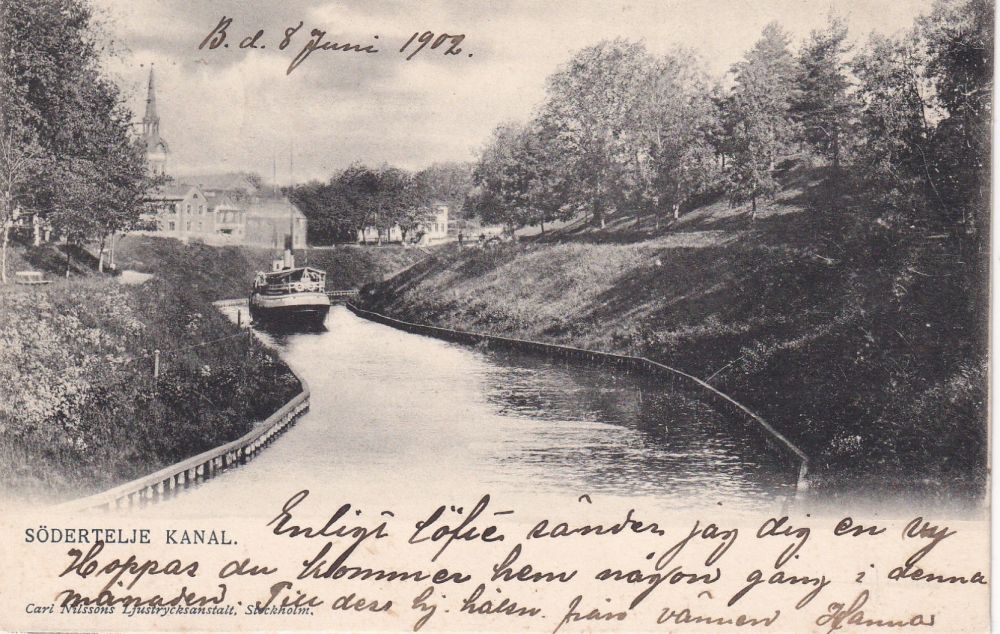 B. d. 8 Juni 1902.
SÖDERTELJE KANAL.
Enligt löfte sänder jag dig en vy
Hoppas du kommer hem någon gång i denna
månaden. Till dess hj. hälsn. från vännen Hanna
Carl Nilssons Ljustrycksanstalt, Stockholm.